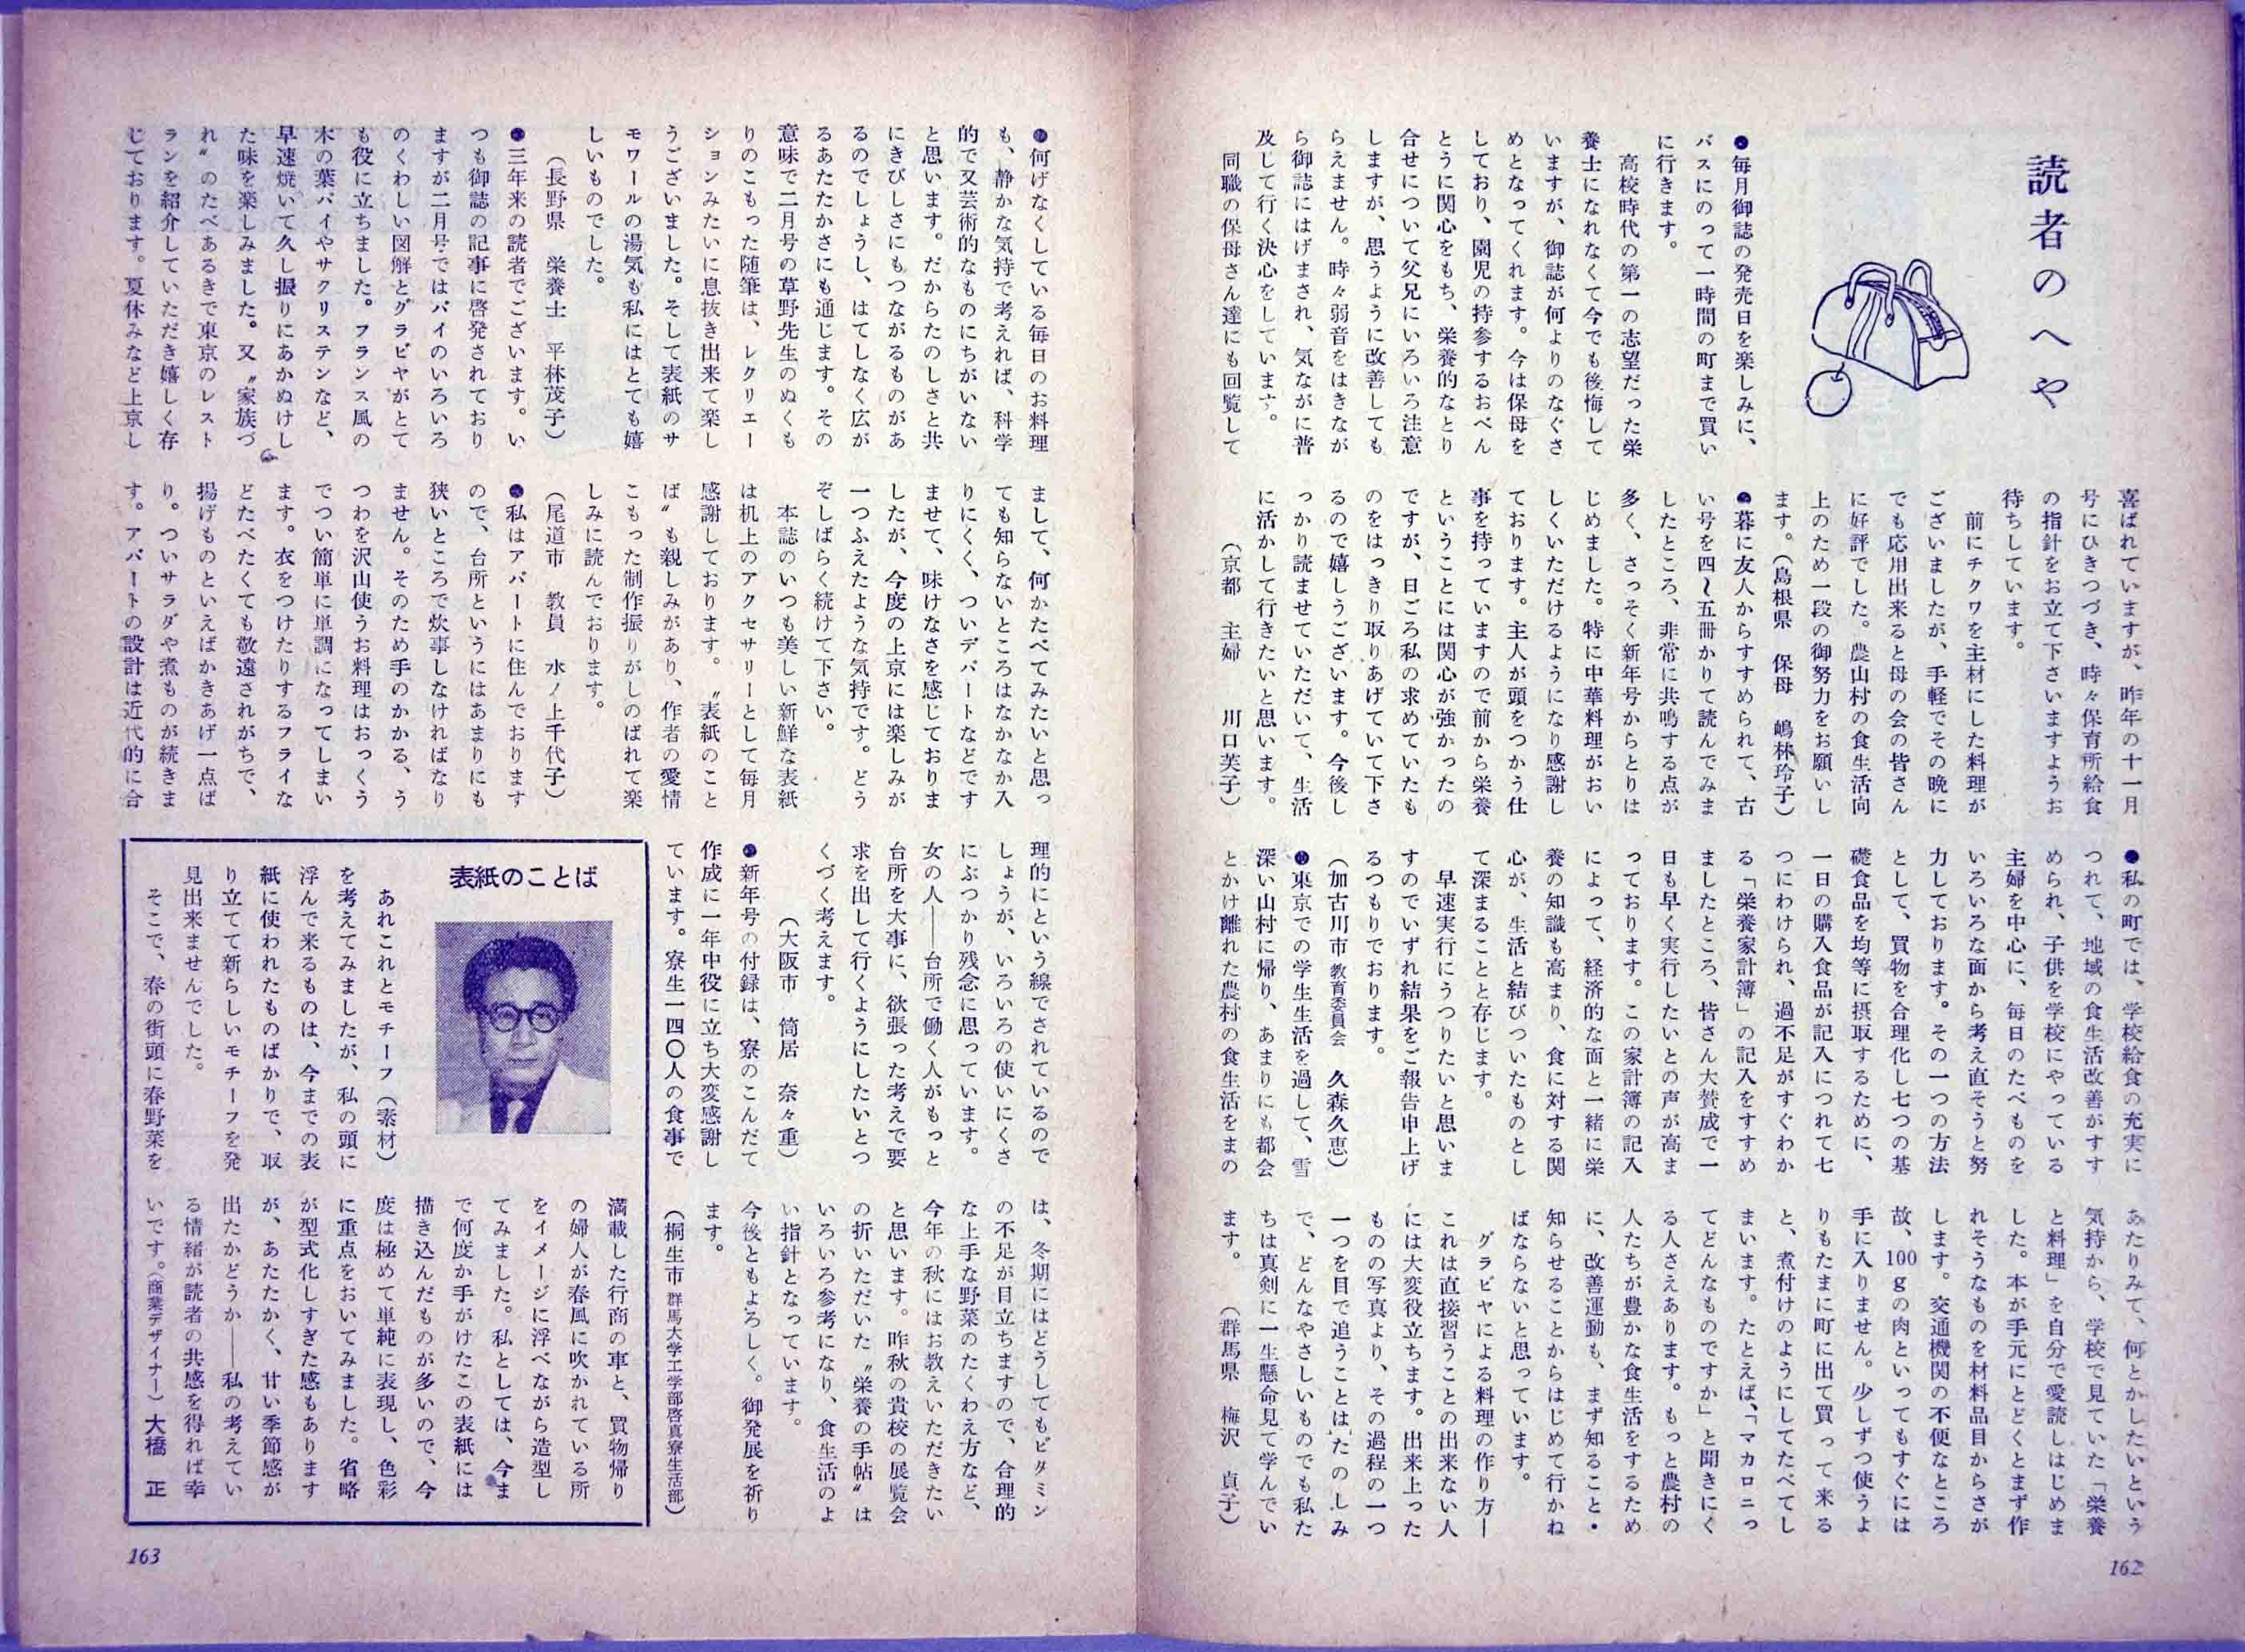 読者のへや
●毎月御誌の発売日を楽しみに、
バスにのって一時間の町まで買い
に行きます。
高校時代の第一の志望だった栄
養士になれなくて今でも後悔して
いますが、御誌が何よりのなぐさ
めとなってくれます。今は保母を
しており、園児の持参するおべん
とうに関心をもち、栄養的なとり
合せについて父兄にいろいろ注意
しますが、思うように改善しても
らえません。時々弱音をはきなが
ら御誌にはげまされ、気ながに普
及して行く決心をしています。
同職の保母さん達にも回覧して
喜ばれていますが、昨年の十一月
号にひきつづき、時々保育所給食
の指針をお立て下さいますようお
待ちしています。
前にチクワを主材にした料理が
ございましたが、手軽でその晩に
でも応用出来ると母の会の皆さん
に好評でした。農山村の食生活向
上のため一段の御努力をお願いし
ます。(島根県 保母 嶋林玲子)
●暮に友人からすすめられて、古
い号を四〜五冊かりて読んでみま
したところ、非常に共鳴する点が
多く、さっそく新年号からとりは
じめました。特に中華料理がおい
しくいただけるようになり感謝し
ております。主人が頭をつかう仕
事を持っていますので前から栄養
ということには関心が強かったの
ですが、日ごろ私の求めていたも
のをはっきり取りあげていて下さ
るので嬉しうございます。今後し
っかり読ませていただいて、生活
に活かして行きたいと思います。
(京都 主婦 川口芙子)
●私の町では、学校給食の充実に
つれて、地域の食生活改善がすす
められ、子供を学校にやっている
主婦を中心に、毎日のたべものを
いろいろな面から考え直そうと努
力しております。その一つの方法
として、買物を合理化し七つの基
礎食品を均等に摂取するために、
一日の購入食品が記入につれて七
つにわけられ、過不足がすぐわか
る「栄養家計簿」の記入をすすめ
ましたところ、皆さん大賛成で一
日も早く実行したいとの声が高ま
っております。この家計簿の記入
によって、経済的な面と一緒に栄
養の知識も高まり、食に対する関
心が、生活と結びついたものとし
て深まることと存じます。
早速実行にうつりたいと思いま
すのでいずれ結果をご報告申上げ
るつもりでおります。
(加古川市 教育委員会 久森久恵)
●東京での学生生活を過して、雪
深い山村に帰り、あまりにも都会
とかけ離れた農村の食生活をまの
あたりみて、何とかしたいという
気持から、学校で見ていた「栄養
と料理」を自分で愛読しはじめま
した。本が手元にとどくとまず作
れそうなものを材料品目からさが
します。交通機関の不便なところ
故、100gの肉といってもすぐには
手に入りません。少しずつ使うよ
りもたまに町に出て買って来る
と、煮付けのようにしてたべてし
まいます。たとえば、「マカロニっ
てどんなものですか」と聞きにく
る人さえあります。もっと農村の
人たちが豊かな食生活をするため
に、改善運動も、まず知ること・
知らせることからはじめて行かね
ばならないと思っています。
グラビヤによる料理の作り方―
これは直接習うことの出来ない人
には大変役立ちます。出来上った
ものの写真より、その過程の一つ
一つを目で追うことはたのしみ
で、どんなやさしいものでも私た
ちは真剣に一生懸命見て学んでい
ます。 (群馬県 梅沢 貞子)
162
●何げなくしている毎日のお料理
も、静かな気持で考えれば、科学
的で又芸術的なものにちがいない
と思います。だからたのしさと共
にきびしさにもつながるものがあ
るのでしょうし、はてしなく広が
るあたたかさにも通じます。その
意味で二月号の草野先生のぬくも
りのこもった随筆は、レクリエー
ションみたいに息抜き出来て楽し
うございました。そして表紙のサ
モワールの湯気も私にはとても嬉
しいものでした。
(長野県 栄養士 平林茂子)
●三年来の読者でございます。い
つも御誌の記事に啓発されており
ますが二月号ではパイのいろいろ
のくわしい図解とグラビヤがとて
も役に立ちました。フランス風の
木の葉パイやサクリステンなど、
早速焼いて久し振りにあかぬけし
た味を楽しみました。又〝家族づ
れ〟のたべあるきで東京のレスト
ランを紹介していただき嬉しく存
じております。夏休みなど上京し
まして、何かたべてみたいと思っ
ても知らないところはなかなか入
りにくく、ついデパートなどです
ませて、味けなさを感じておりま
したが、今度の上京には楽しみが
一つふえたような気持です。どう
ぞしばらく続けて下さい。
本誌のいつも美しい新鮮な表紙
は机上のアクセサリーとして毎月
感謝しております。〝表紙のこと
ば〟も親しみがあり、作者の愛情
こもった制作振りがしのばれて楽
しみに読んでおります。
(尾道市 教員 水ノ上千代子)
●私はアパートに住んでおります
ので、台所というにはあまりにも
狭いところで炊事しなければなり
ません。そのため手のかかる、う
つわを沢山使うお料理はおっくう
でつい簡単に単調になってしまい
ます。衣をつけたりするフライな
どたべたくても敬遠されがちで、
揚げものといえばかきあげ一点ば
り。ついサラダや煮ものが続きま
す。アパートの設計は近代的に合
理的にという線でされているので
しょうが、いろいろの使いにくさ
にぶつかり残念に思っています。
女の人――台所で働く人がもっと
台所を大事に、欲張った考えで要
求を出して行くようにしたいとつ
くづく考えます。
(大阪市 筒居 奈々重)
●新年号の付録は、寮のこんだて
作成に一年中役に立ち大変感謝し
ています。寮生一四〇人の食事で
は、冬期にはどうしてもビタミン
の不足が目立ちますので、合理的
な上手な野菜のたくわえ方など、
今年の秋にはお教えいただきたい
と思います。昨秋の貴校の展覧会
の折いただいた〝栄養の手帖〟は
いろいろ参考になり、食生活のよ
い指針となっています。
今後ともよろしく。御発展を祈り
ます。
(桐生市 群馬大学工学部啓真寮生活部)
表紙のことば
あれこれとモチーフ(素材)
を考えてみましたが、私の頭に
浮んで来るものは、今までの表
紙に使われたものばかりで、取
り立てて新らしいモチーフを発
見出来ませんでした。
そこで、春の街頭に春野菜を
満載した行商の車と、買物帰り
の婦人が春風に吹かれている所
をイメージに浮べながら造型し
てみました。私としては、今ま
で何度か手がけたこの表紙には
描き込んだものが多いので、今
度は極めて単純に表現し、色彩
に重点をおいてみました。省略
が型式化しすぎた感もあります
が、あたたかく、甘い季節感が
出たかどうか――私の考えてい
る情緒が読者の共感を得れば幸
いです。(商業デザイナー) 大橋 正
163